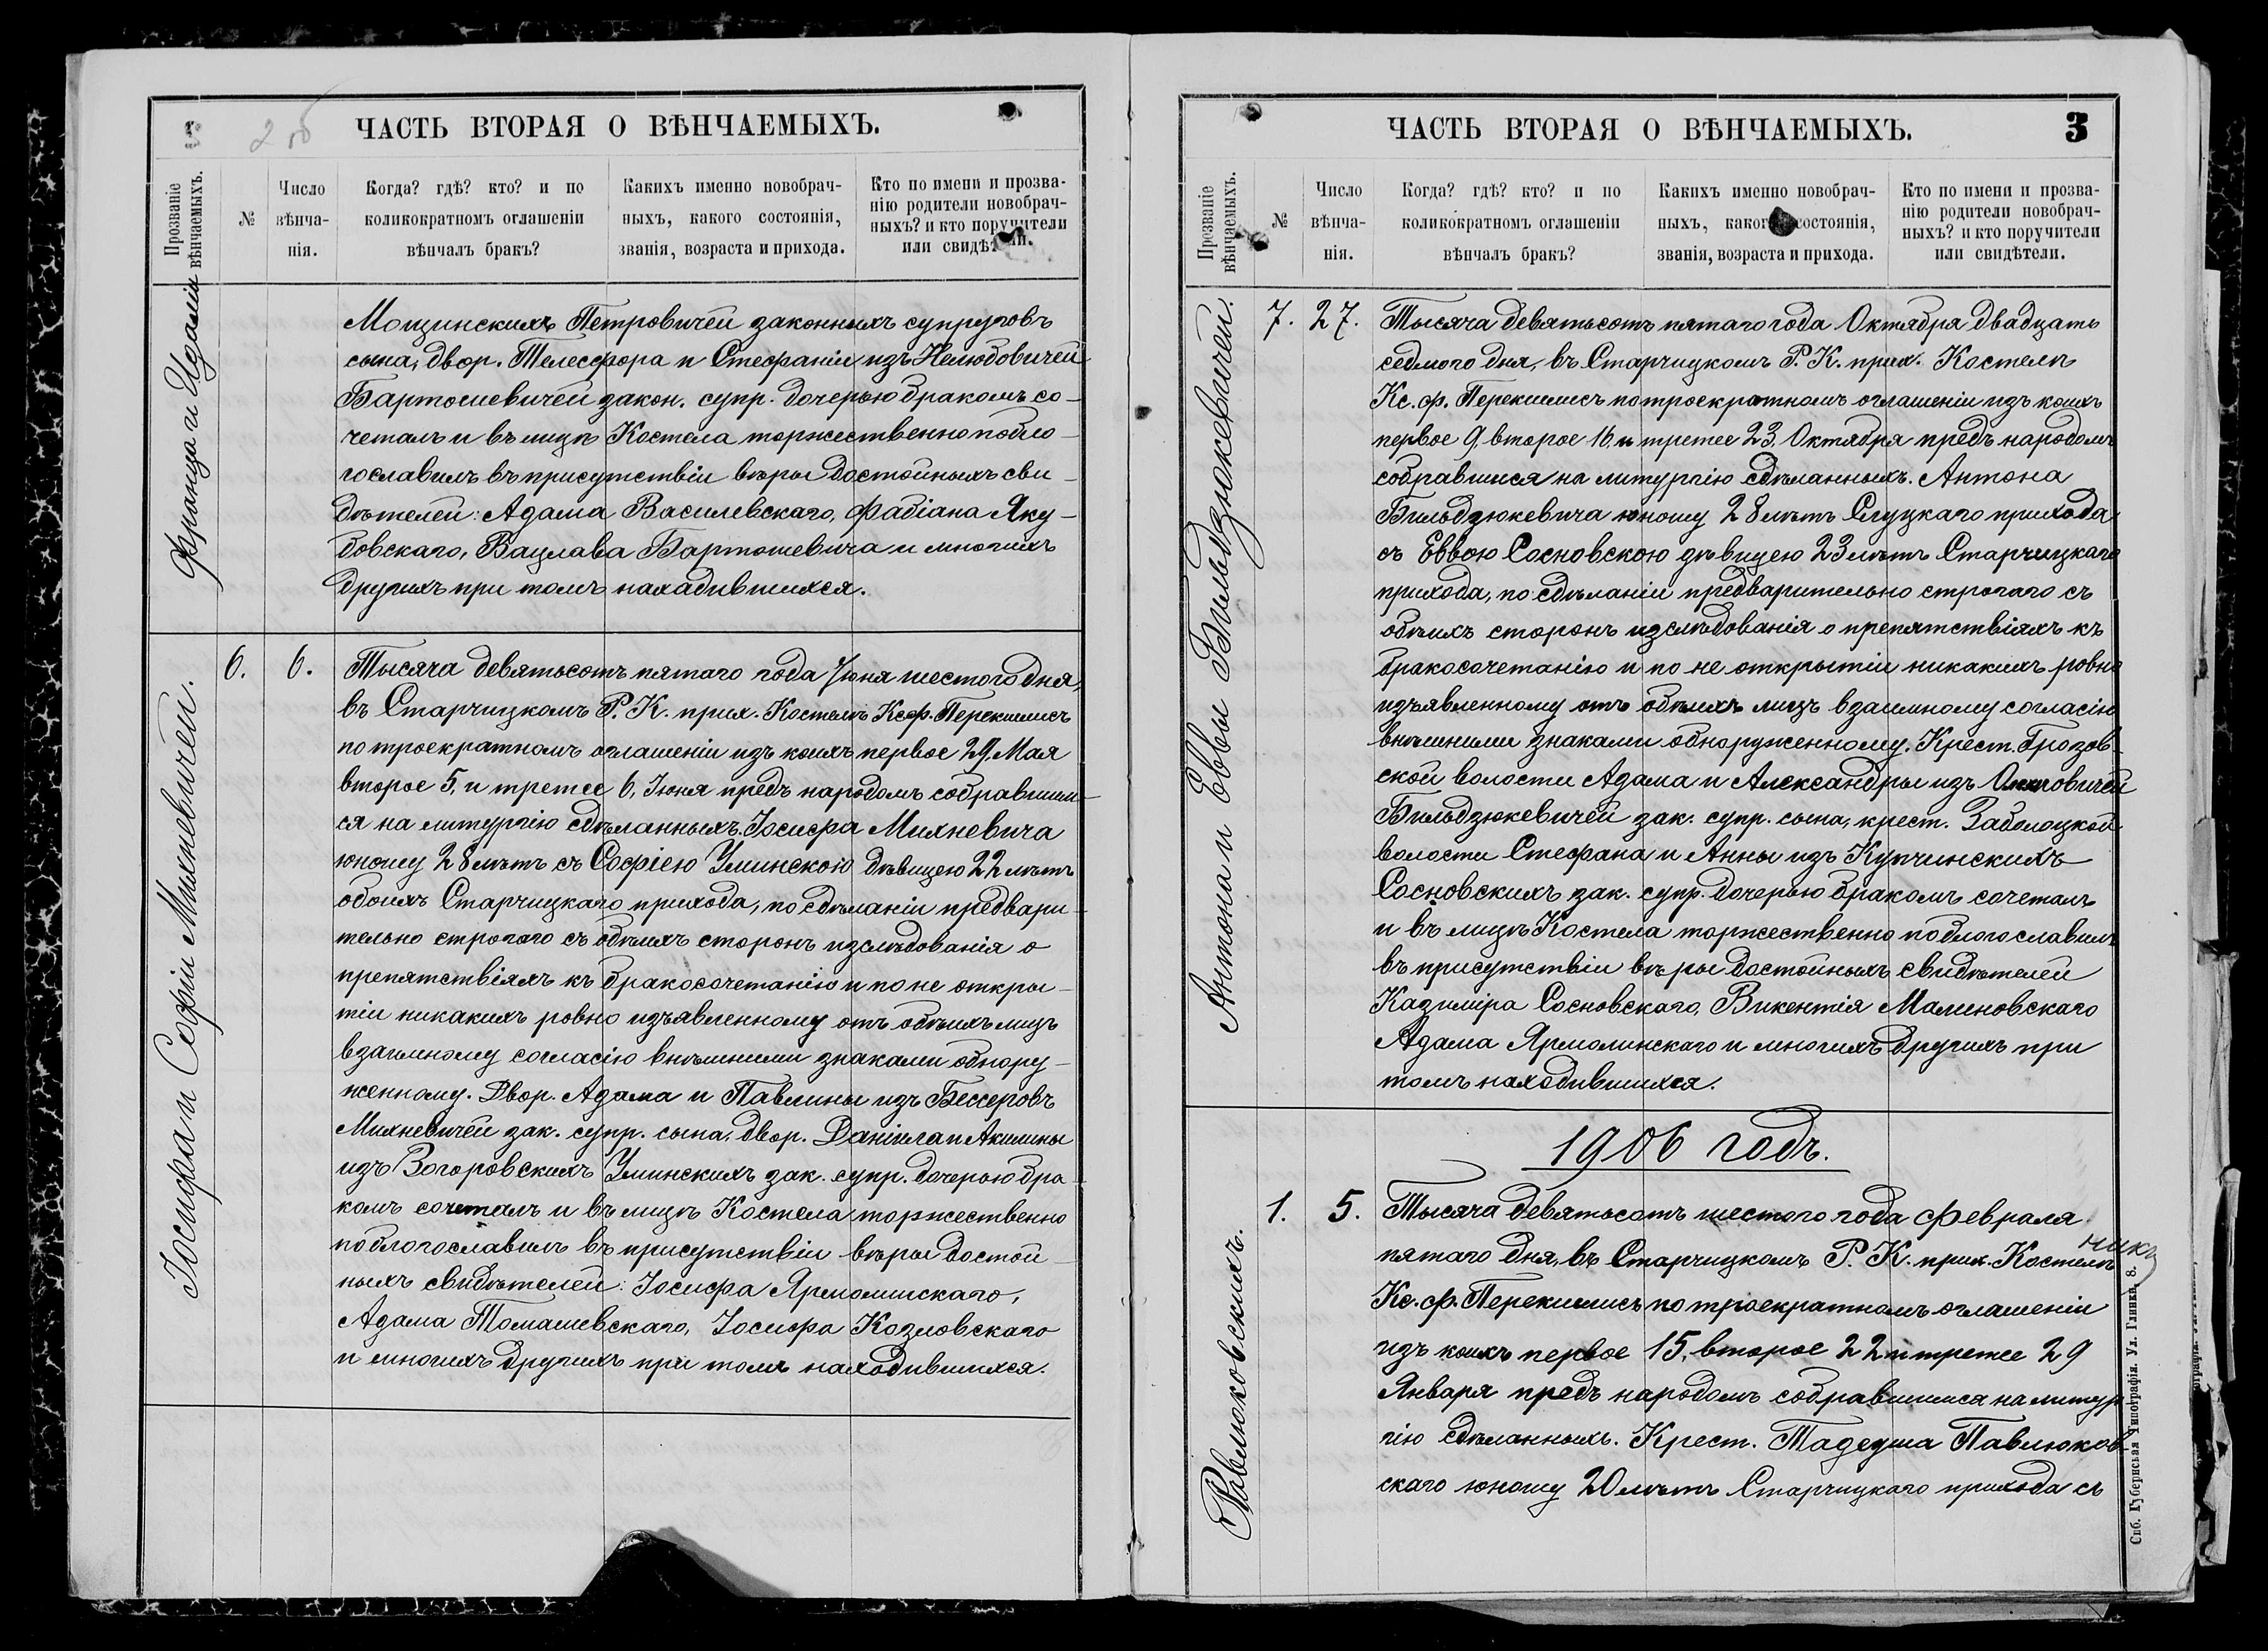 2 об
ЧАСТЬ ВТОРАЯ О ВѢНЧАЕМЫХЪ.
Прозваніе
вѣнчаемыхъ.
№
Число
вѣнча-
нія.
Когда? гдѣ? кто? и по
коликократномъ оглашеніи
вѣнчалъ бракъ?
Какихъ именно новобрач-
ныхъ, какого состоянія,
званія, возраста и прихода.
Кто по имени и прозва-
нію родители новобрач-
ныхъ? и кто поручители
или свидѣт
Франца и Идаліи
Мощинскихъ Петровичей законныхъ супруговъ
сына, двор. Телесфора и Стефаніи изъ Нелюбовичей
Бартошевичей закон. супр. дочерью бракомъ со-
четалъ и въ лицѣ Костела торжественно побло-
гославилъ въ присутствіи вѣры достойныхъ сви-
дѣтелей: Адама Василевскаго, Фабіана Яку-
бовскаго, Вацлава Бартошевича и многихъ
другихъ при томъ находившихся.
Іосифа и Софіи Михневичей.
6. 6.
Тысяча девятьсотъ пятаго года Іюня шестого дня,
въ Старчицкомъ Р. К. прих. Костелѣ Кс. ф. Перекшлисъ
по троекратномъ оглашеніи изъ коихъ первое 29, Мая
второе 5, и третее 6, Іюня предъ народомъ собравшим-
ся на литургію сдѣланныхъ. Іосифа Михневича
юношу 28 лѣтъ съ Софіею Уминскою дѣвицею 22 лѣтъ
обоихъ Старчицкаго прихода, по сдѣланіи предвари-
тельно строгаго съ обѣихъ сторонъ изслѣдованія о
препятствіяхъ къ бракосочетанію и по не откры-
тіи никакихъ ровно изъявленному отъ обѣихъ лицъ
взаимному согласію внѣшними знаками обнару-
женному. Двор. Адама и Павлины изъ Бессеровъ
Михневичей зак. супр. сына, двор. Даніила и Акилины
изъ Вогоровскихъ Уминскихъ зак. супр. дочерью бра-
комъ сочеталъ и въ лицѣ Костела торжественно
поблогославилъ въ присутствіи вѣры достой-
ныхъ свидѣтелей: Іосифа Ярмолинскаго,
Адама Томашевскаго, Іосифа Козловскаго
и многихъ другихъ при томъ находившихся.
ЧАСТЬ ВТОРАЯ О ВѢНЧАЕМЫХЪ.
3
Прозваніе
вѣнчаемыхъ.
№
Число
вѣнча-
нія.
Когда? гдѣ? кто? и по
коликократномъ оглашеніи
вѣнчалъ бракъ?
Какихъ именно новобрач-
ныхъ, какого состоянія,
званія, возраста и прихода.
Кто по имени и прозва-
нію родители новобрач-
ныхъ? и кто поручители
или свидѣтели.
Антона и Еввы Бильдзюкевичей.
7. 27.
Тысяча девятьсотъ пятаго года Октября двадцать
седмого дня, въ Старчицкомъ Р. К. прих. Костелѣ
Кс. ф. Перекшлисъ по троекратномъ оглашеніи изъ коихъ
первое 9, второе 16, и третее 23, Октября предъ народомъ
собравшися на литургію сдѣланныхъ. Антона
Бильдзюкевича юношу 28 лѣтъ Слуцкаго прихода
съ Еввою Сосновскою дѣвицею 23 лѣтъ Старчицкаго
прихода, по сдѣланіи предварительно строгаго съ
обѣихъ сторонъ изслѣдованія о препятствіяхъ къ
бракосочетанію и по не открытіи никакихъ ровно
изъявленному отъ обѣихъ лицъ взаимному согласію
внѣшними знаками обнаруженному. Крест. Грозов-
ской волости Адама и Александры изъ
Бильдзюкевичей зак. супр. сына, крест. Заболоцкой
волости Стефана и Анны изъ Купчинскихъ
Сосновскихъ зак. супр. дочерью бракомъ сочеталъ
и въ лицѣ Костела торжественно поблогославилъ
въ присутствіи вѣры достойныхъ свидѣтелей
Казиміра Сосновскаго, Викентія Малиновскаго
Адама Ярмолинскаго и многихъ другихъ при
томъ находившихся.
1906 годъ.
Павлюковскихъ.
1. 5.
Тысяча девятьсотъ шестого года Февраля
пятаго дня, въ Старчицкомъ Р. К. прих. Костелѣ
Кс. ф. Перекшлисъ по троекратномъ оглашеніи
изъ коихъ первое 15, второе 22 и третее 29
Января предъ народомъ собравшимся на литур-
гію сдѣланныхъ. Крест. Тадеуша Павлюков-
скаго юношу 20 лѣтъ Старчицкаго прихода съ
Спб. Губернская Типографія. Ул. Глинки 8.